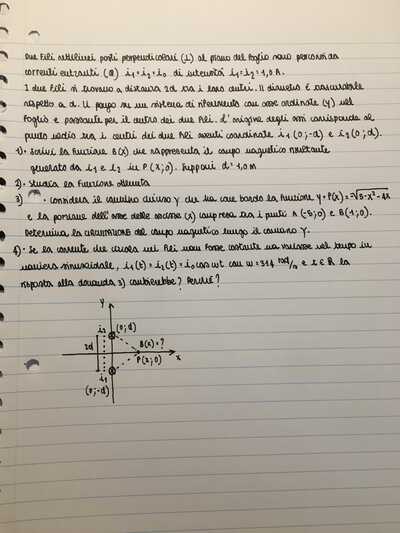 Due fili rettilinei posti perpendicolari (⊥) al piano del foglio sono percorsi da
correnti entranti (⊗) i₁=i₂=i₀ di intensità i₁=i₂=1,0 A.
I due fili si trovano a distanza 2d tra i loro centri. Il diametro è trascurabile
rispetto a d. Il piano su un sistema di riferimento con asse ordinate (y) nel
foglio e passante per il centro dei due fili. L'origine degli assi corrisponde al
punto medio tra i centri dei due fili aventi coordinate i₁(0;-d) e i₂(0;d).
1)• Scrivi la funzione B(x) che rappresenta il campo magnetico risultante
generato da i₁ e i₂ in P(x;0). Supponi d=1,0 m
2)• Studia la funzione ottenuta
3) • Considera il cammino chiuso γ che ha come bordo la funzione y=f(x)=-√5-x²-4x
e la porzione dell'asse delle ascisse (x) compresa tra i punti A(-5;0) e B(1;0).
Determina la circuitazione del campo magnetico lungo il cammino γ.
4)• Se la corrente che circola nei fili non fosse costante ma variasse nel tempo in
maniera sinusoidale, i₁(t)=i₂(t)=i₀cos ωt con ω=314 rad/s e t∈ℝ la
risposta alla domanda 3) cambierebbe? Perché?
y
i₂ (0;d)
2d B(x)=?
P(x;0) x
i₁
(0;-d)